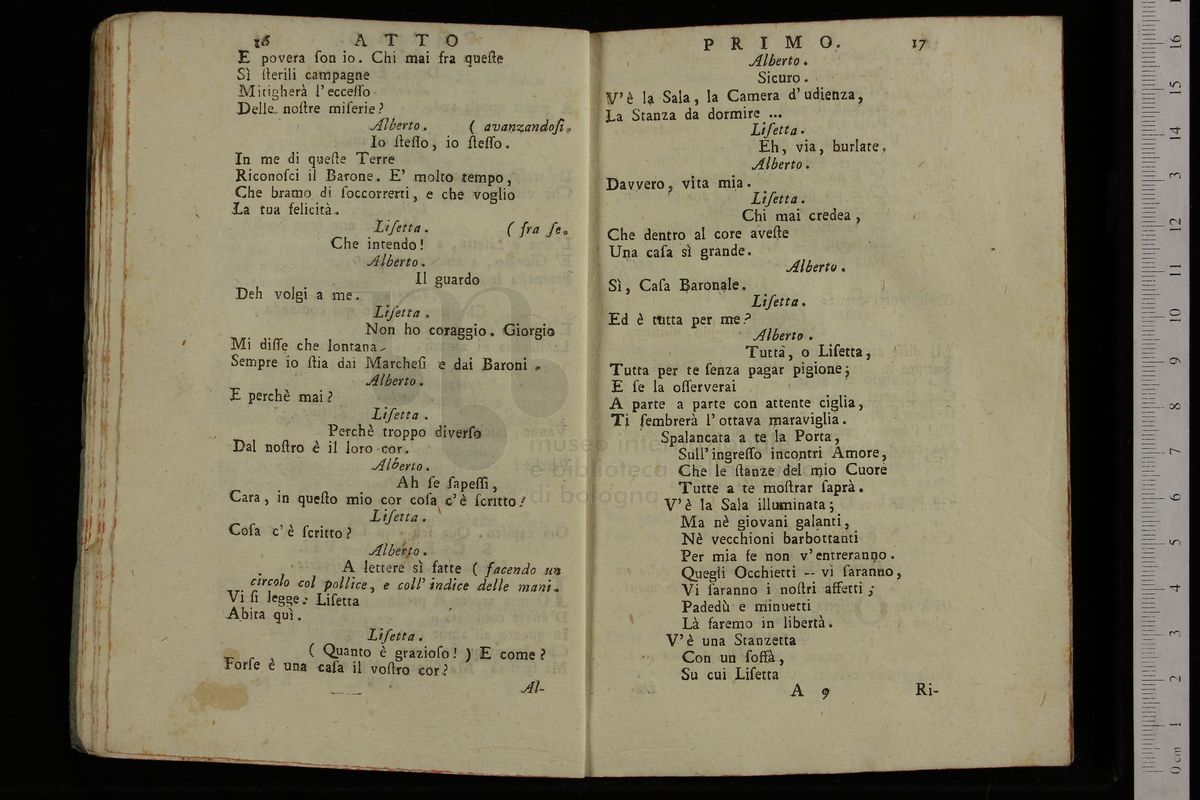 16 ATTO
E povera ſon io. Chi mai fra queſte
Sì ſterili campagne
Mitigherà l'ecceſſo
Delle noſtre miſerie?
Alberto. ( avanzandoſi.
Io ſteſſo, io ſteſſo.
In me di queſte Terre
Riconoſci il Barone. E' molto tempo,
Che bramo di ſoccorrerti, e che voglio
La tua felicità.
Liſetta. ( fra ſe.
Che intendo!
Alberto.
Il guardo
Deh volgi a me.
Liſetta.
Non ho coraggio. Giorgio
Mi diſſe che lontana
Sempre io ſtia dai Marcheſi e dai Baroni.
Alberto.
E perchè mai?
Liſetta.
Perchè troppo diverſo
Dal noſtro è il loro cor.
Alberto.
Ah ſe ſapeſſi,
Cara, in queſto mio cor coſa c'è ſcritto!
Liſetta.
Coſa c'è ſcritto?
Alberto.
A lettere sì fatte ( facendo un
circolo col pollice, e coll' indice delle mani.
Vi ſi legge: Liſetta
Abita quì.
Liſetta.
( Quanto è grazioſo! ) E come?
Forſe è una caſa il voſtro cor?
Al-
PRIMO. 17
Alberto.
Sicuro.
V'è la Sala, la Camera d'udienza,
La Stanza da dormire ...
Liſetta.
Eh, via, burlate.
Alberto.
Davvero, vita mia.
Liſetta.
Chi mai credea,
Che dentro al core aveſte
Una caſa sì grande.
Alberto.
Sì, Caſa Baronale.
Liſetta.
Ed è tutta per me?
Alberto.
Tutta, o Liſetta,
Tutta per te ſenza pagar pigione;
E ſe la oſſerverai
A parte a parte con attente ciglia,
Ti ſembrerà l'ottava maraviglia.
Spalancata a te la Porta,
Sull'ingreſſo incontri Amore,
Che le ſtanze del mio Cuore
Tutte a te moſtrar ſaprà.
V'è la Sala illuminata;
Ma nè giovani galanti,
Nè vecchioni barbottanti
Per mia fe non v'entreranno.
Quegli Occhietti -- vi ſaranno,
Vi ſaranno i noſtri affetti;
Padedù e minuetti
Là faremo in libertà.
V'è una Stanzetta
Con un ſoffà,
Su cui Liſetta
A 9 Ri-